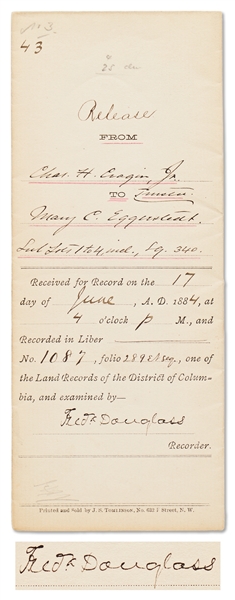 No 3.
43
Release
FROM
Chas. H. Cragin, Jr.
TO Trustee
Mary C. Eggerstedt
Sub Lots 1 to 4, incl., Sq. 340.
Received for Record on the 17
day of June, A. D. 1884, at
4 o'clock P M., and
Recorded in Liber
No. 1087, folio 289 et seq., one of
the Land Records of the District of Colum-
bia, and examined by—
Fredk Douglass
Recorder.
Printed and Sold by J. S. Tomlinson, No. 632 F Street, N. W.
Fredk Douglass